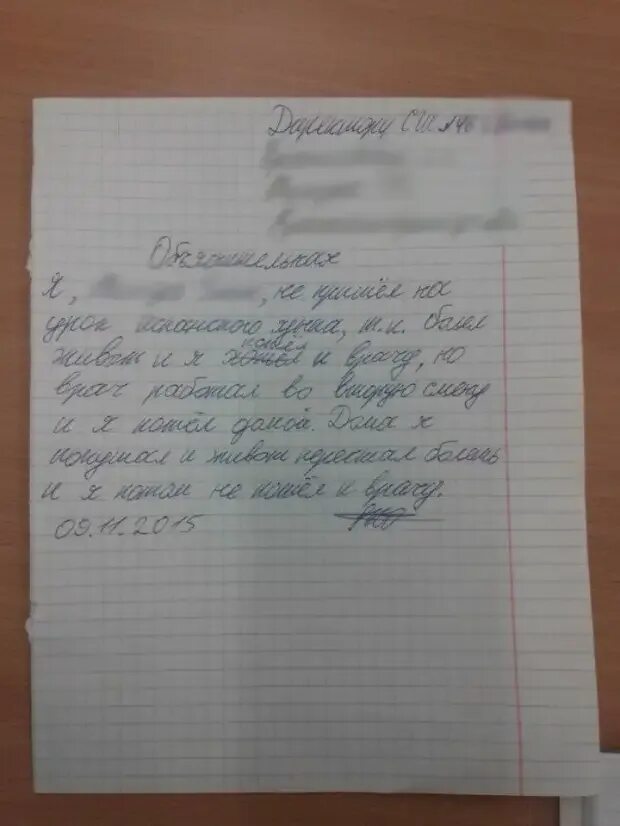 Директору СШ №
Объяснительная
Я, не пришёл на
урок испанского языка, т.к. болел
живот и я пошёл к врачу, но
врач работал во вторую смену
и я пошёл домой. Дома я
покушал и живот перестал болеть
и я потом не пошёл к врачу.
09.11.2015